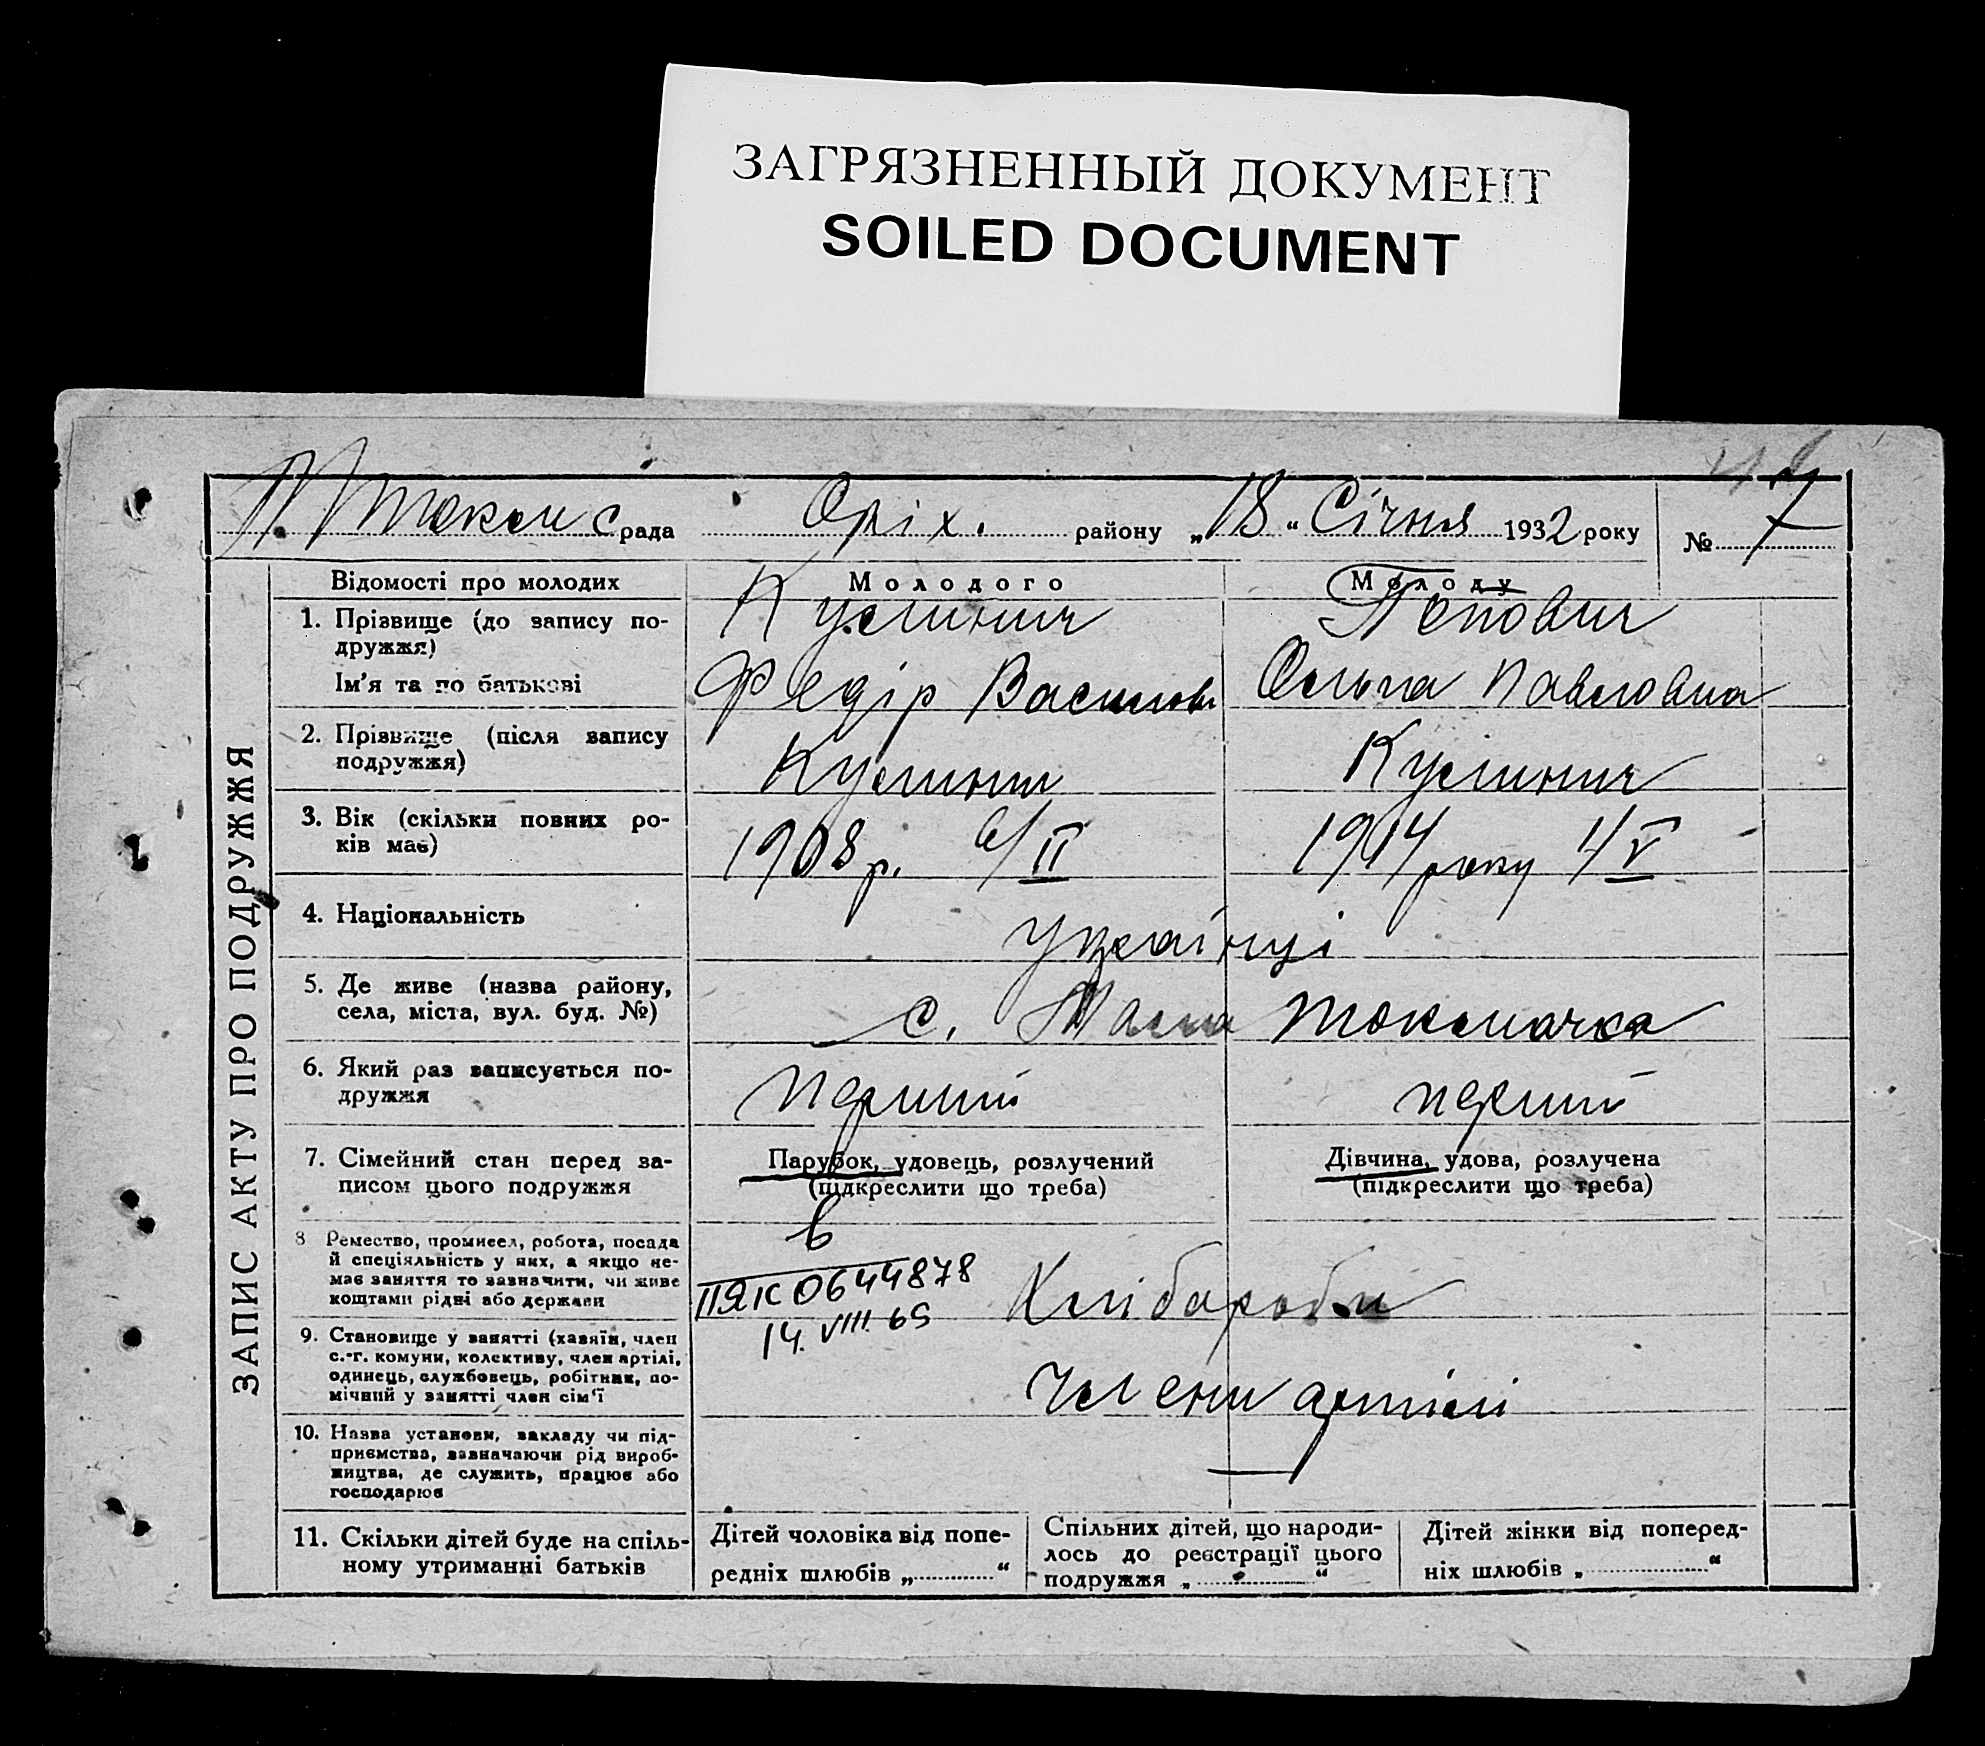 ЗАГРЯЗНЕННЫЙ ДОКУМЕНТ
SOILED DOCUMENT
рада Оріх. району „18“ Січня 1932 року № 7
ЗАПИС АКТУ ПРО ПОДРУЖЖЯ
Відомості про молодих
Молодого
Молоду
1. Прізвище (до запису по-
дружжя)
Кулинич
Попович
Ім'я та по батькові
Федір Васильов
Ольга Павловна
2. Прізвище (після запису
подружжя)
Кулинич
Кулинич
3. Вік (скільки повних ро-
ків має)
1908 р. 6/II
1914 року 4/V
4. Національність
Українці
5. Де живе (назва району,
села, міста, вул. буд. №)
с. Мала Токмачка
6. Який раз записується по-
дружжя
перший
перший
7. Сімейний стан перед за-
писом цього подружжя
Парубок, удовець, розлучений
(підкреслити що треба)
Дівчина, удова, розлучена
(підкреслити що треба)
8 Ремество, промисел, робота, посада
й спеціяльність у них, а якщо не-
має заняття то зазначити, чи живе
коштами рідні або держави
ІІЯК 0644878
14. VIII. 65
Хлібороби
9. Становище у занятті (хазяїн, член
с.-г. комуни, колективу, член артілі,
одинець, службовець, робітник, по-
мічний у занятті член сім'ї
Члени артілі
10. Назва установи, закладу чи під-
приємства, зазначаючи рід вироб-
ництва, де служить, працює або
господарює
11. Скільки дітей буде на спіль-
ному утриманні батьків
Дітей чоловіка від попе-
редніх шлюбів „ “
Спільних дітей, що народи-
лось до реєстрації цього
подружжя „ “
Дітей жінки від поперед-
ніх шлюбів „ “